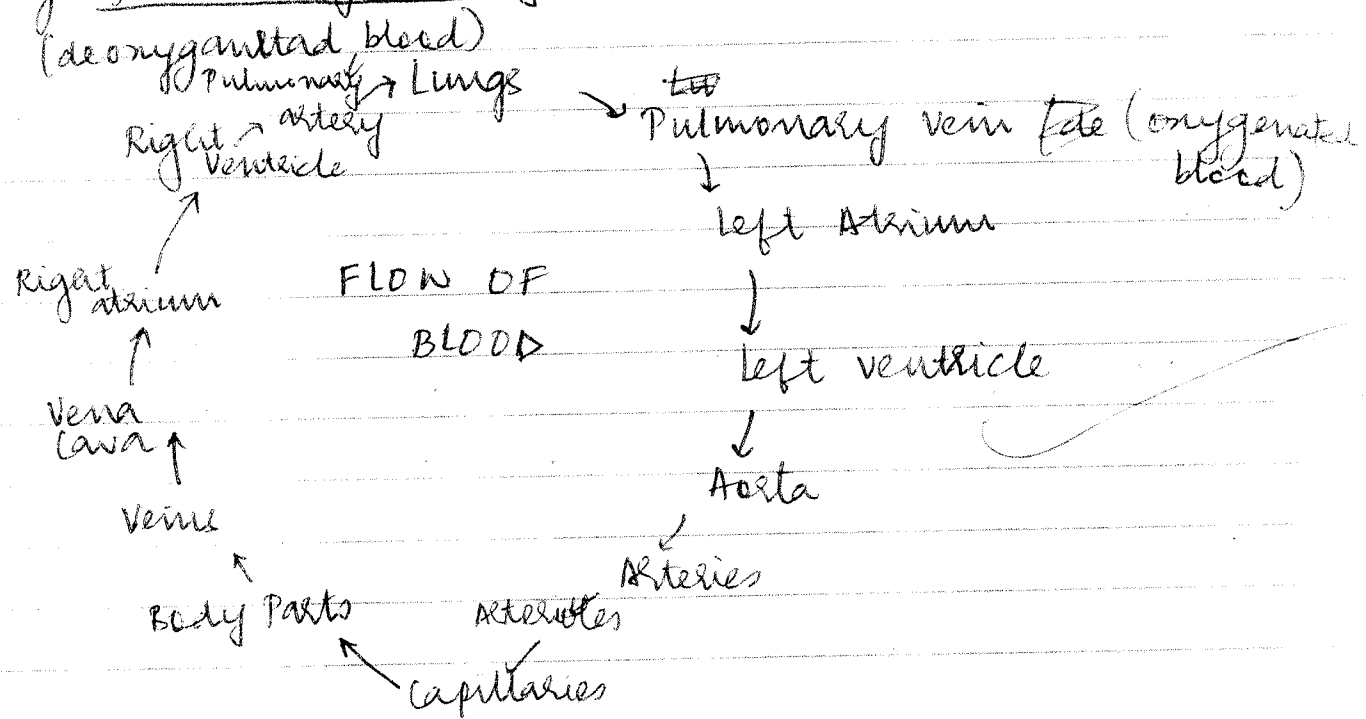 (deoxyganetad blood)
Pulmonary
artery
Lungs
Right
Ventricle
Pulmonary vein (oxygenated
blood)
Left Atrium
Right
atrium
FLOW OF
BLOOD
Left ventricle
Vena
Cava
Aorta
Veins
Arteries
Body Parts
Arterioles
Capillaries